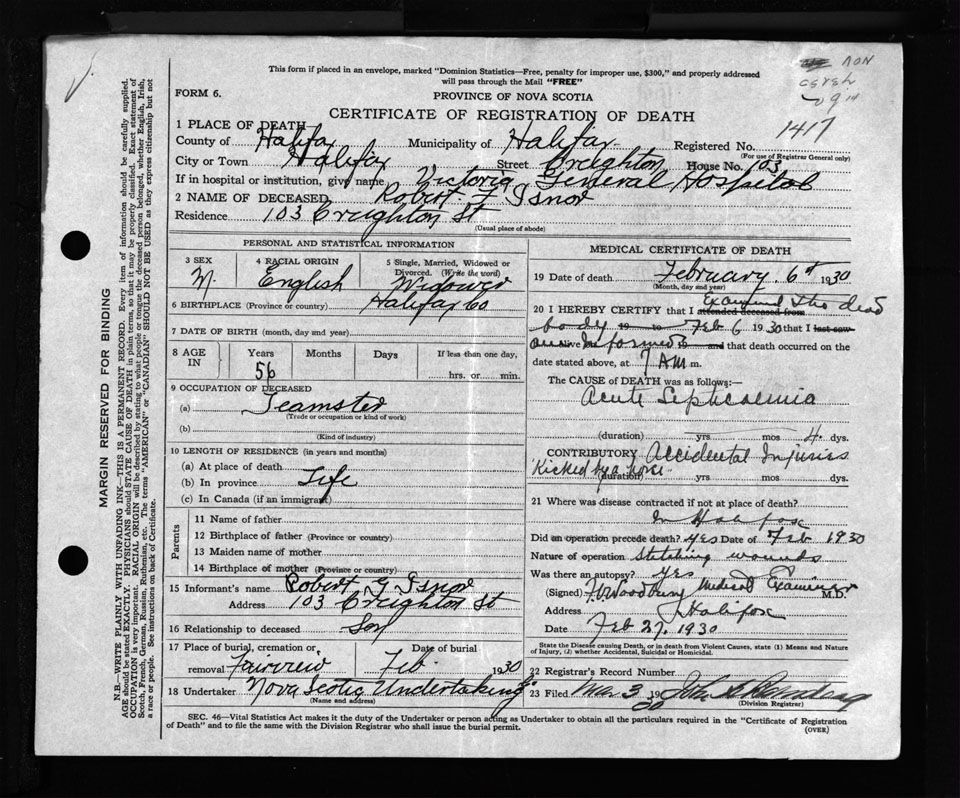 This form if placed in an envelope, marked "Dominion Statistics—Free, penalty for improper use, $300," and properly addressed
will pass through the Mail "FREE"
FORM 6.
PROVINCE OF NOVA SCOTIA
CERTIFICATE OF REGISTRATION OF DEATH
1417
1 PLACE OF DEATH
County of Halifax Municipality of Halifax Registered No.
(For use of Registrar General only)
City or Town Halifax Street Creighton House No. 103
If in hospital or institution, give name Victoria General Hospital
2 NAME OF DECEASED Robert Isnor
Residence 103 Creighton St
(Usual place of abode)
MARGIN RESERVED FOR BINDING
N.B.—WRITE PLAINLY WITH UNFADING INK—THIS IS A PERMANENT RECORD. Every item of information should be carefully supplied.
AGE should be stated EXACTLY. PHYSICIANS should STATE CAUSE OF DEATH in plain terms, so that it may be properly classified. Exact statement of
OCCUPATION is very important. RACIAL ORIGIN will be described by stating to what people or tongue the deceased person belonged, whether English, Irish,
Scotch, French, German, Russian, Ruthenian, etc. The terms "AMERICAN" or "CANADIAN" SHOULD NOT BE USED as they express citizenship but not
a race or people. See instructions on back of Certificate.
PERSONAL AND STATISTICAL INFORMATION
3 SEX
M.
4 RACIAL ORIGIN
English
5 Single, Married, Widowed or
Divorced. (Write the word)
Widower
6 BIRTHPLACE (Province or country) Halifax Co
7 DATE OF BIRTH (Month, day and year)
8 AGE IN
Years Months Days If less than one day,
56
hrs. or min.
9 OCCUPATION OF DECEASED
(a) Teamster
(Trade or occupation or kind of work)
(b)
(Kind of industry)
10 LENGTH OF RESIDENCE (in years and months)
(a) At place of death
(b) In province Life
(c) In Canada (if an immigrant)
Parents
11 Name of father
12 Birthplace of father (Province or country)
13 Maiden name of mother
14 Birthplace of mother (Province or country)
15 Informant's name Robert G Isnor
Address 103 Creighton St
16 Relationship to deceased Son
17 Place of burial, cremation or Date of burial
removal Fairview Feb 1930
18 Undertaker Nova Scotia Undertaking Co
(Name and address)
MEDICAL CERTIFICATE OF DEATH
19 Date of death February 6th 1930
(Month, day and year)
Examined the dead
20 I HEREBY CERTIFY that I attended deceased from
body 19 to Feb 6 1930 that I last saw
alive Informed and that death occurred on the
date stated above, at 7 AM m.
The CAUSE of DEATH was as follows:
Acute Septicaemia
(duration) yrs mos 4 dys.
CONTRIBUTORY Accidental Injuries
Kicked by a horse
(duration) yrs mos dys.
21 Where was disease contracted if not at place of death?
In Halifax
Did an operation precede death? yes Date of Feb 1930
Nature of operation Stitching wounds
Was there an autopsy? yes
(Signed) Medical Examiner M.D.
Address Halifax
Date Feb 27, 1930
State the Disease causing Death, or in death from Violent Causes, state (1) Means and Nature
of Injury, (2) whether Accidental, Suicidal or Homicidal.
22 Registrar's Record Number
23 Filed Mar 3 1930
(Division Registrar)
SEC. 46—Vital Statistics Act makes it the duty of the Undertaker or person acting as Undertaker to obtain all the particulars required in the "Certificate of Registration
of Death" and to file the same with the Division Registrar who shall issue the burial permit. (OVER)